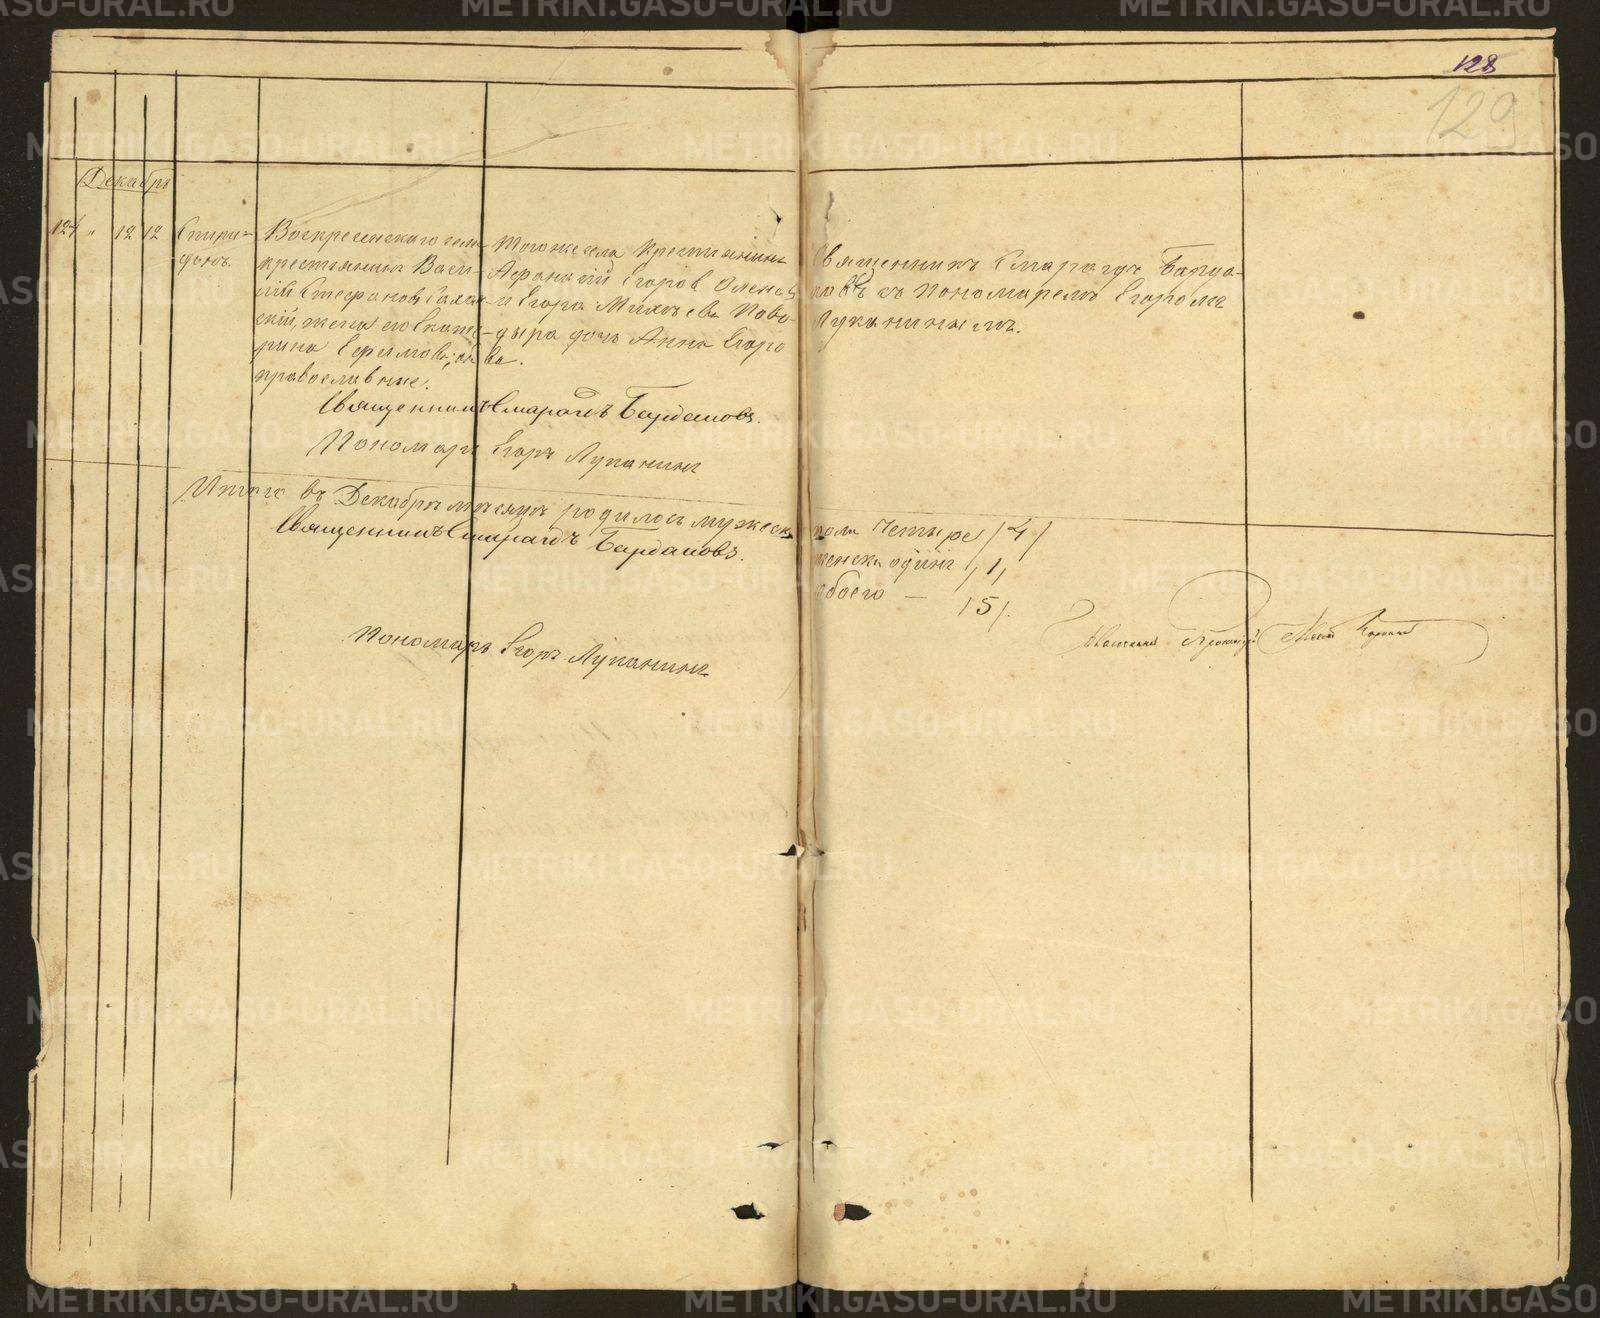 128
129
Декабрь
124 " 12 12
Спири-
донъ.
Воскресенскаго села
крестьянинъ Васи-
лій Стефановъ
скій, жена его Екате-
рина Ефимова, оба
православные.
Тогоже села крестьянинъ
Афанасій Егоровъ
и Егора Михѣева Пово-
дыра дочь Анна Егоро
ва.
Священникъ Смарагдъ Бардa-
ковъ съ Пономаремъ Егоромъ
Луканинымъ.
Священникъ Смарагдъ Бардаковъ.
Пономарь Егоръ Луканинъ
Итого въ Декабрѣ мѣсяцѣ родилось мужеска
пола четыре /4/
женска одинъ /1/
обоего — /5/.
Священникъ Смарагдъ Бардаковъ.
Пономарь Егоръ Луканинъ
METRIKI.GASO-URAL.RU